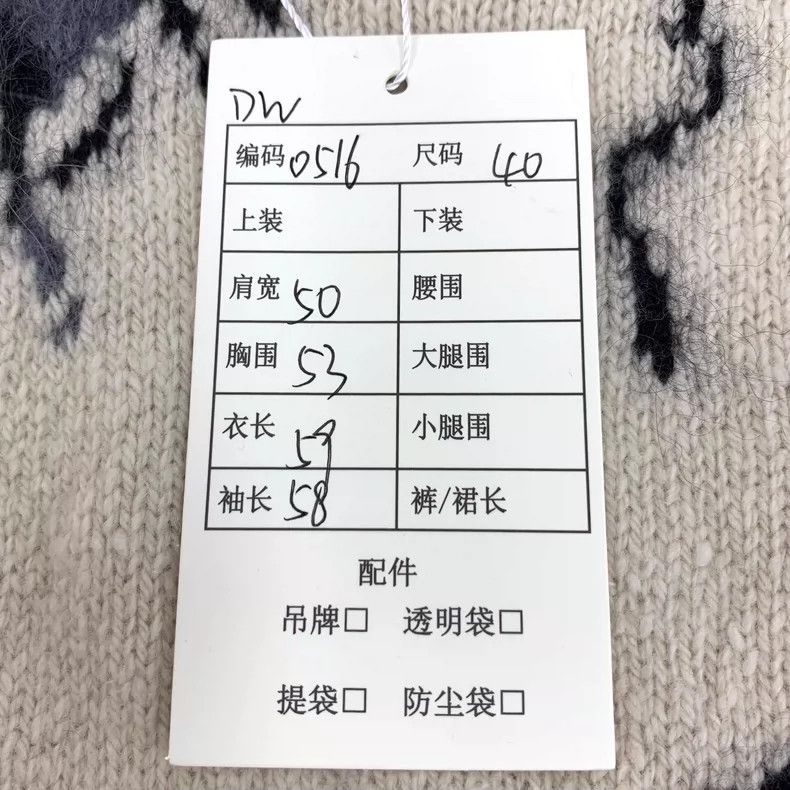 DW
编码 0516 尺码 40
上装 下装
肩宽 50 腰围
胸围 53 大腿围
衣长 59 小腿围
袖长 58 裤/裙长
配件
吊牌□ 透明袋□
提袋□ 防尘袋□